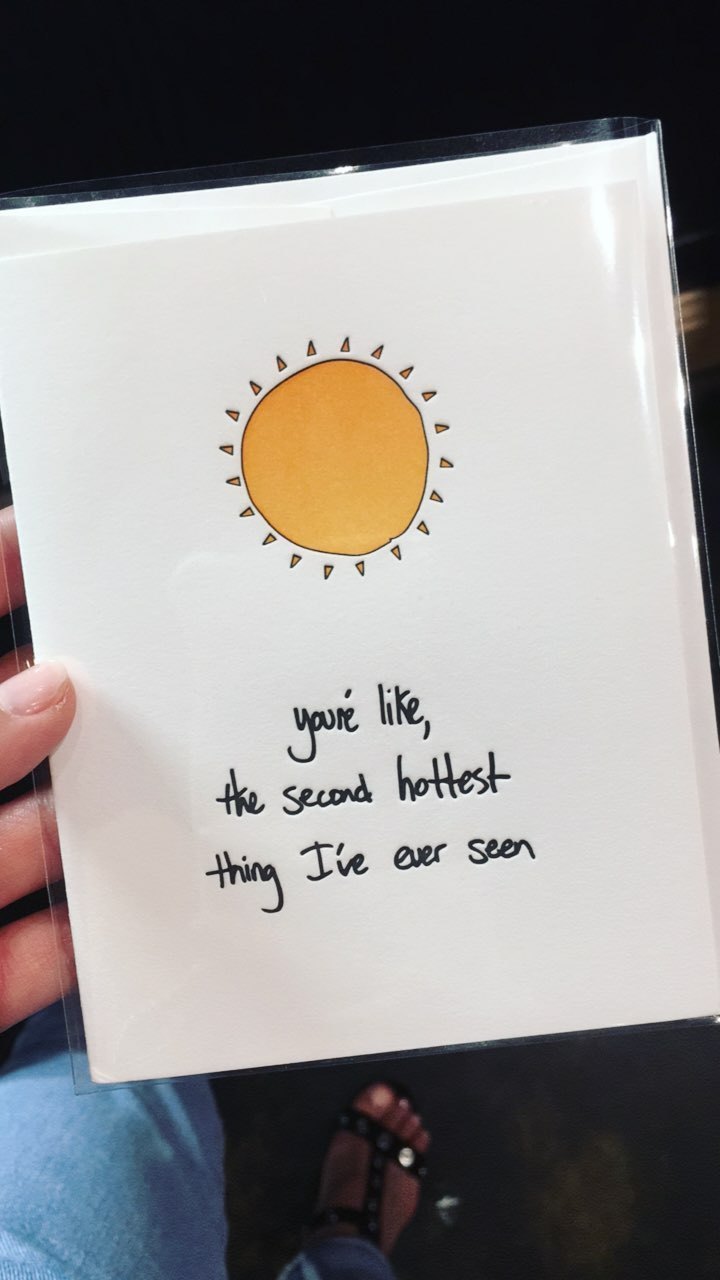 you're like,
the second hottest
thing I've ever seen